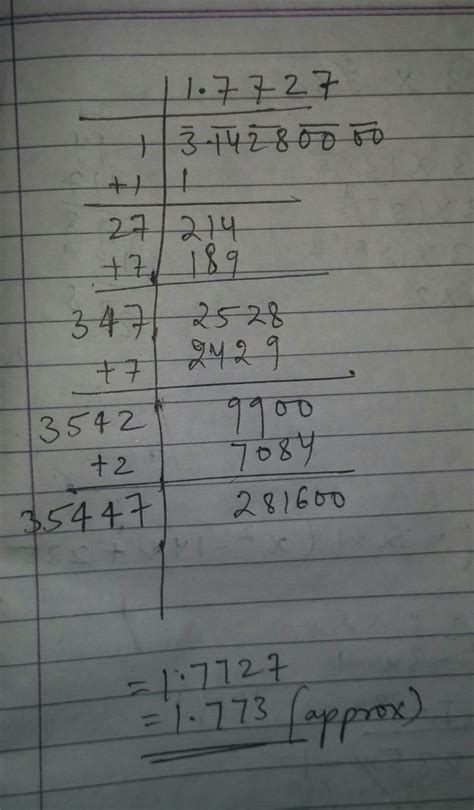 1.7727
1 3.1428 00 00
+1 1
27 214
+7 189
347 2528
+7 2429
3542 9900
+2 7084
35447 281600
=1.7727
=1.773 (approx)